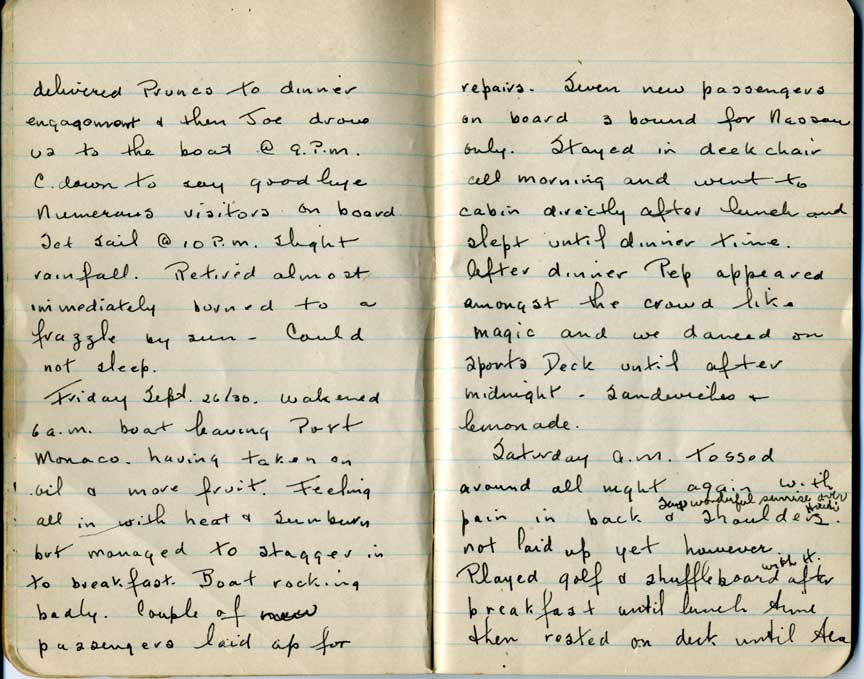 delivered Prunes to dinner
engagement & then Joe drove
us to the boat @ 9.P.M.
C. down to say goodbye
Numerous visitors on board
Set sail @ 10 P.M. slight
rainfall. Retired almost
immediately burned to a
frazzle by sun - Could
not sleep.
Friday Sept. 26/30. wakened
6 a.m. boat leaving Port
Monaco. having taken on
oil & more fruit. Feeling
all in with heat & sunburn
but managed to stagger in
to breakfast. Boat rocking
badly. Couple of new
passengers laid up for
repairs. Seven new passengers
on board 3 bound for Nassau
only. Stayed in deck chair
all morning and went to
cabin directly after lunch and
slept until dinner time.
After dinner Pep appeared
amongst the crowd like
magic and we danced on
Sports Deck until after
midnight - Sandwiches &
lemonade.
Saturday a.m. tossed
around all night again with
Saw wonderful sunrise over
pain in back & shoulders.
not laid up yet however.
with H.
Played golf & shuffleboard after
breakfast until lunch time
then rested on deck until tea